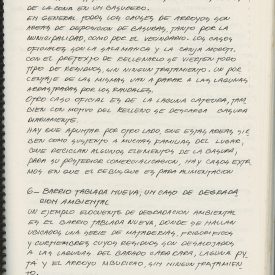 DE LA ZONA EN UN BASURERO.
EN GENERAL TODOS LOS CAUCES DE ARROYOS SON
AREAS DE DEPOSICION DE BASURAS, TANTO POR LA
MUNICIPALIDAD, COMO POR EL VECINDARIO. LOS CASOS
OFICIALES SON LA SALAMANCA Y LA ZANJA MOROTI.
CON EL PRETEXTO DE RELLENARLO SE VIERTEN TODO
TIPO DE RESIDUOS, SIN NINGUN TRATAMIENTO. UN POR
CENTAJE DE LAS MISMAS VAN A PARAR A LAS LAGUNAS,
ARRASTRADAS POR LOS RAUDALES.
OTRO CASO OFICIAL ES DE LA LAGUNA CATEURA, TAM
BIEN CON MOTIVO DEL RELLENO SE DESCARGA BASURA
DIARIAMENTE.
HAY QUE APUNTAR POR OTRO LADO, QUE ESTAS AREAS SIR
VEN COMO SUSTENTO A MUCHAS FAMILIAS DEL LUGAR,
QUE RECICLAN ALGUNOS ELEMENTOS DE LA BASURA,
PARA SU POSTERIOR COMERCIALIZACION, HAY CASOS EXTRE
MOS EN QUE EL REBUSQUE ES PARA ALIMENTACION
6- BARRIO TABLADA NUEVA, UN CASO DE DEGRADA
CION AMBIENTAL
UN EJEMPLO ELOCUENTE DE DEGRADACION AMBIENTAL
ES EL BARRIO TABLADA NUEVA, DONDE SE HALLAN
UBICADOS UNA SERIE DE MATADERIAS, FRIGORIFICOS
Y CURTIEMBRES CUYOS RESIDUOS SON DESALOJADOS
A LAS LAGUNAS DEL BAÑADO CARA CARA, LAGUNA PY
TA Y EL ARROYO MBURICAO, SIN NINGUN TRATAMIEN
TO.